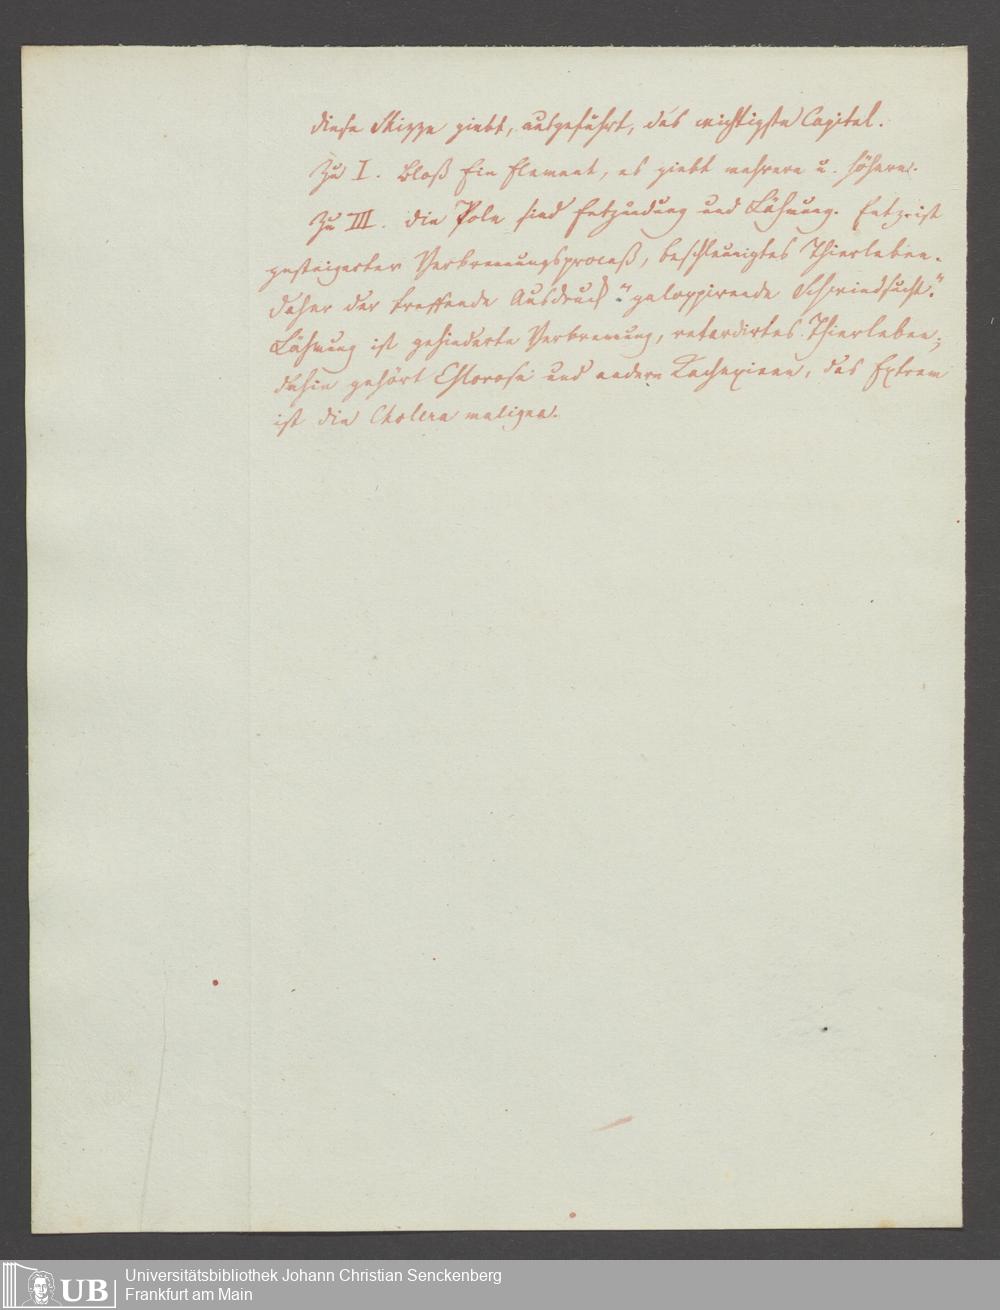 diese Skizze giebt, ausgeführt, das wichtigste Capitel.
Zu I. Bloß Ein Element, es giebt mehrere u. höhere.
Zu III. Die Pole sind Entzündung und Lähmung. Entz. ist
gesteigerter Verbrennungsproceß, beschleunigtes Thierleben.
daher der treffende Ausdruck "galoppirende Schwindsucht."
Lähmung ist gehinderte Verbrennung, retardirtes Thierleben;
dahin gehört Chlorose und andere Kachexieen, das Extrem
ist die Cholera maligna.
UB
Universitätsbibliothek Johann Christian Senckenberg
Frankfurt am Main